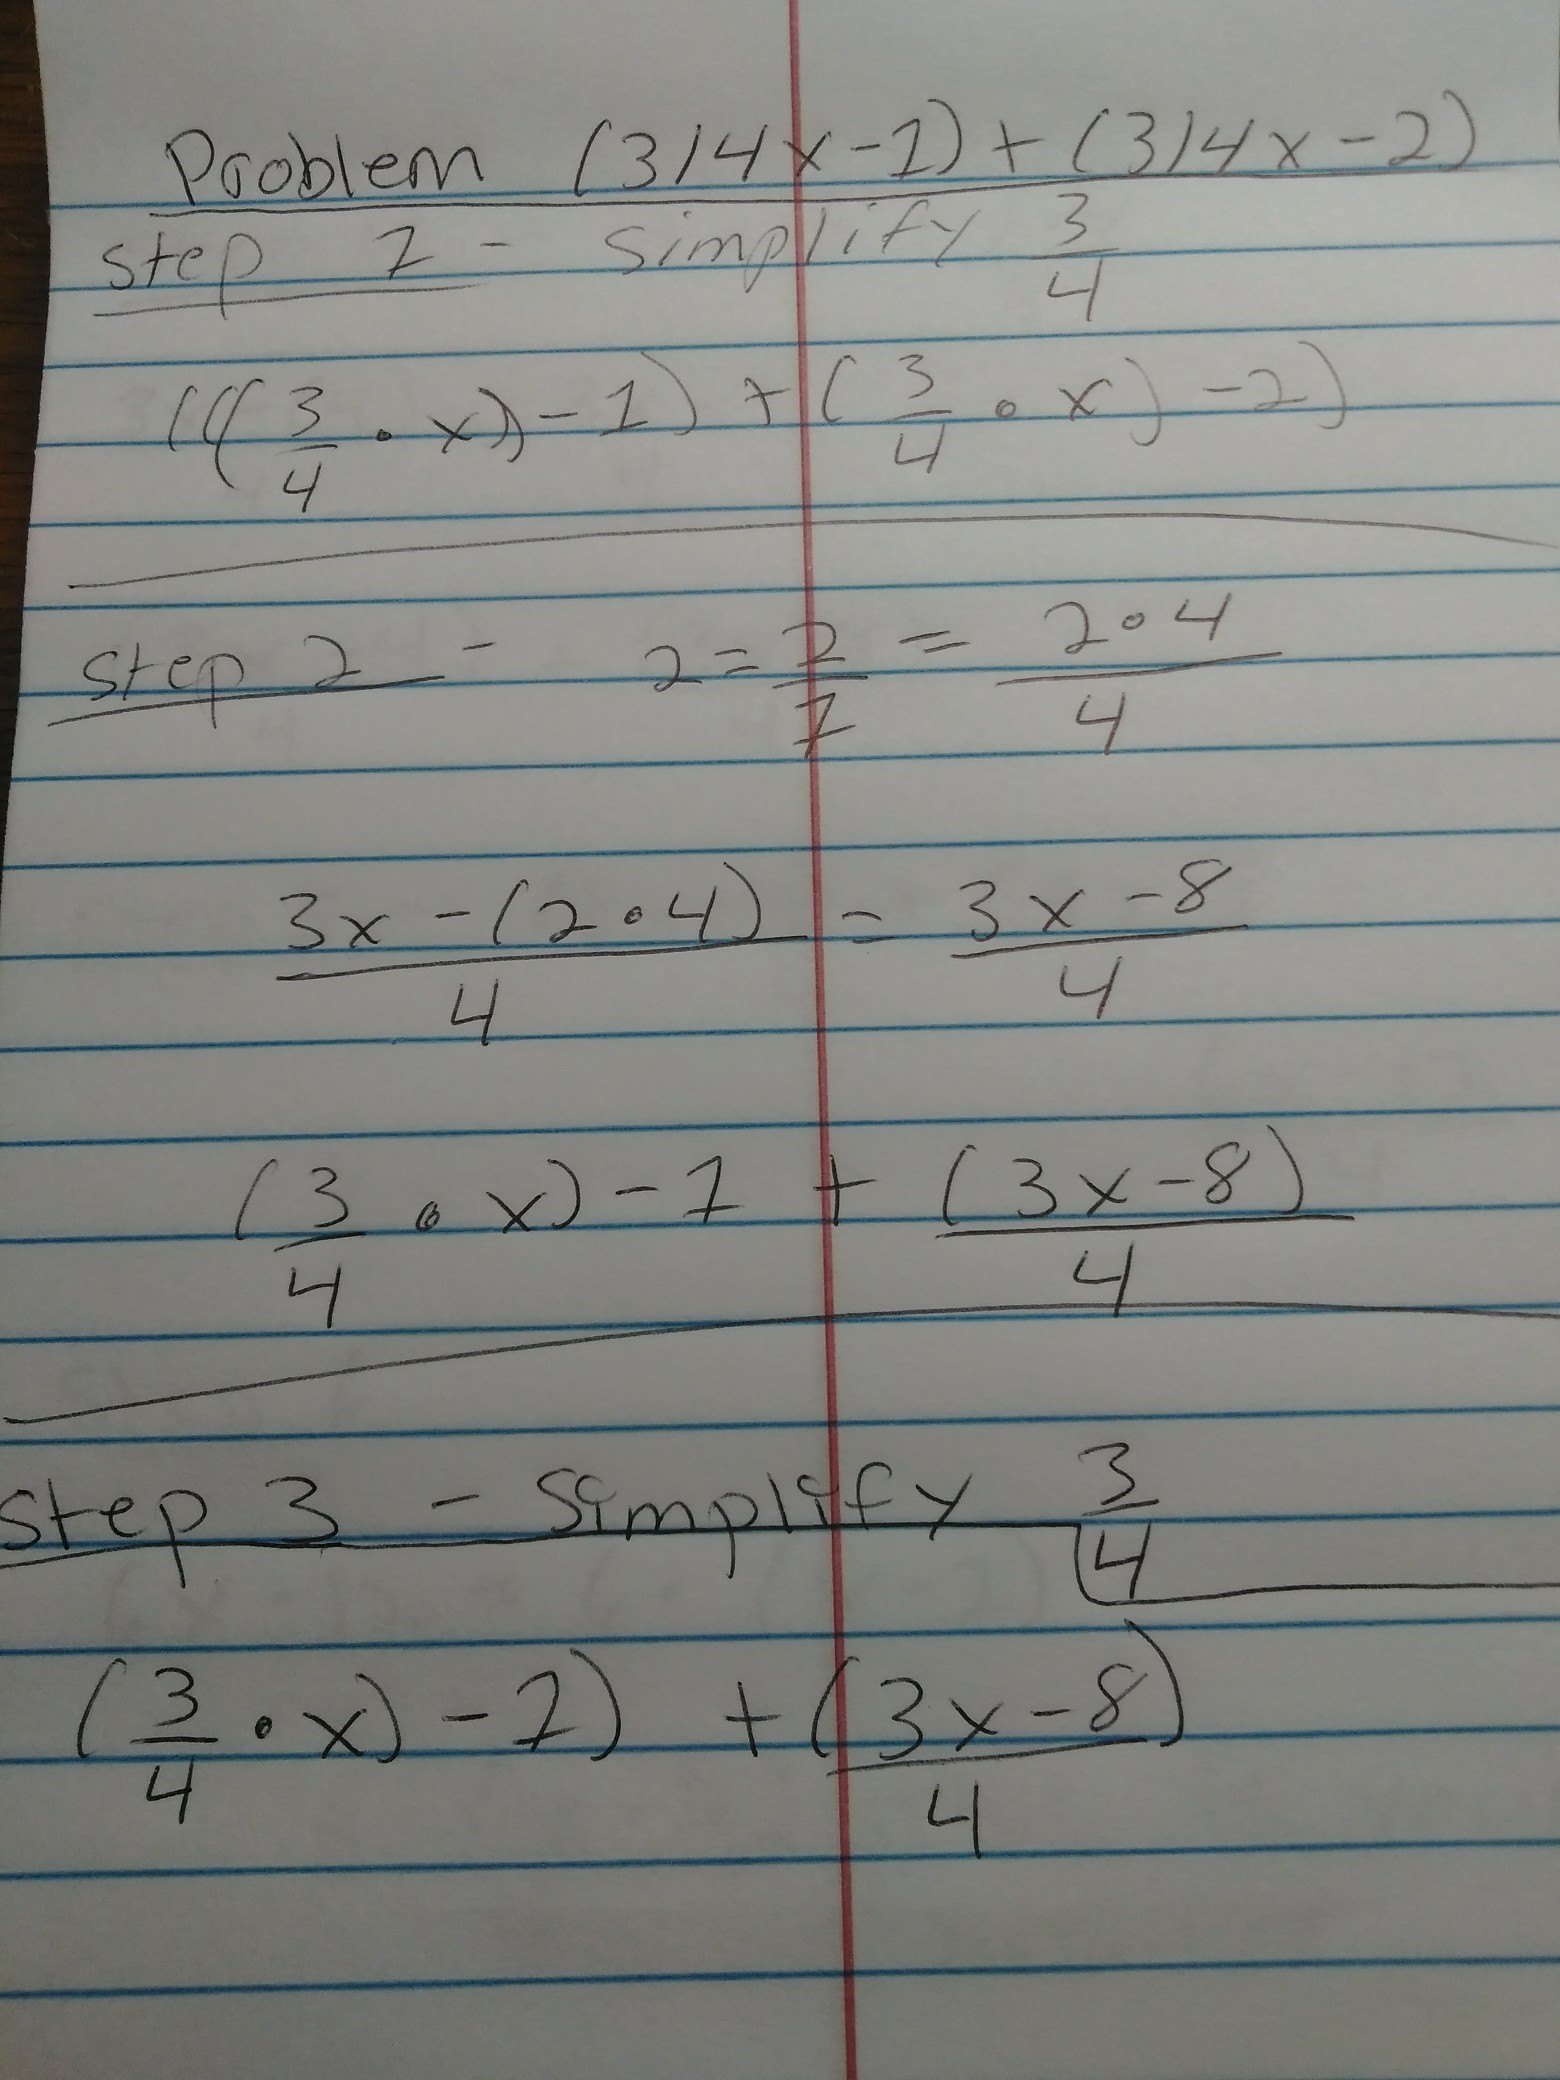 Problem (3/4x-1)+(3/4x-2)
step 1 - simplify 3/4
(((3/4 • x))-1) + (3/4 • x) -2)
step 2 - 2 = 2/1 = 2•4/4
3x -(2•4)/4 = 3x -8/4
(3/4 • x) -1 + (3x-8)/4
step 3 - Simplify 3/4
(3/4 • x) -1) + (3x-8)/4